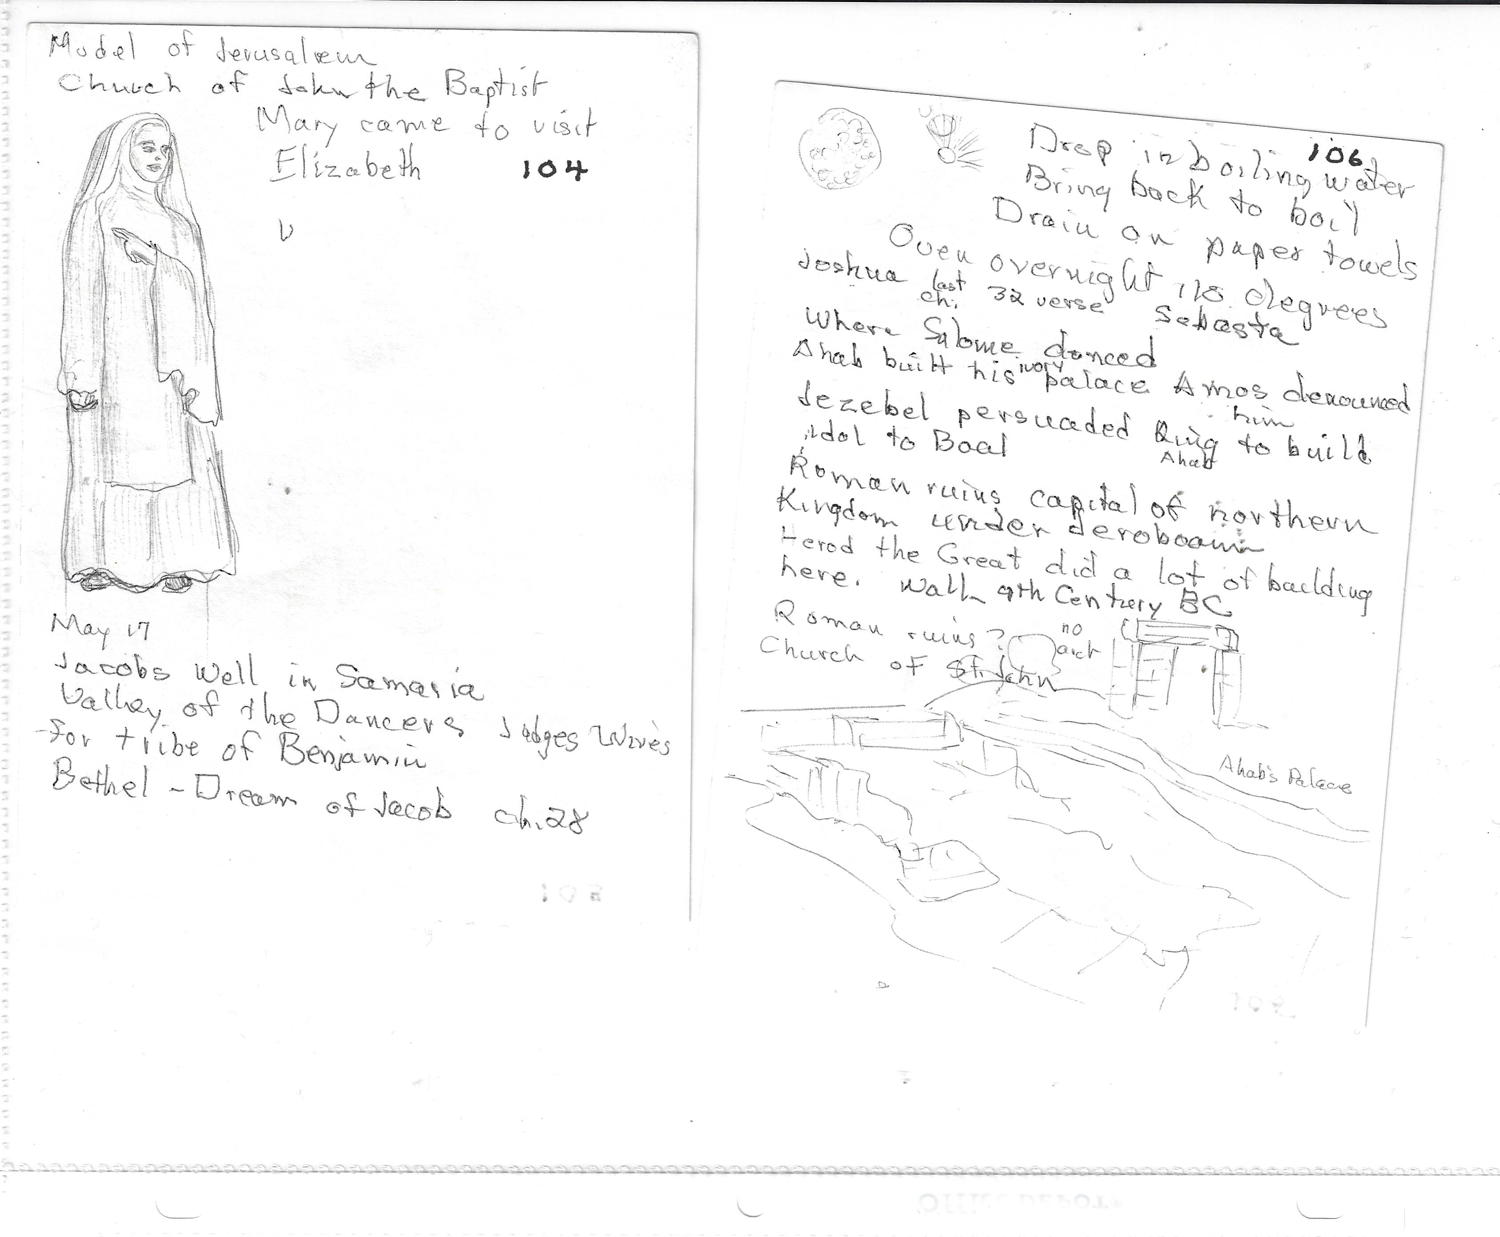 Model of Jerusalem
Church of John the Baptist
Mary came to visit
Elizabeth 104
May 17
Jacobs Well in Samaria
Valley of the Dancers Judges Wives
For tribe of Benjamin
Bethel - Dream of Jacob ch. 28
106
Drop in boiling water
Bring back to boil
Drain on paper towels
Oven overnight 118 degrees
Joshua last ch. 32 verse Sebasta
Where Salome danced
Ahab built his ivory palace Amos denounced him
Jezebel persuaded King Ahab to build
idol to Baal
Roman ruins capital of northern
Kingdom under Jeroboam
Herod the Great did a lot of building
here. Wall 9th Century BC
Roman ruins? no arch
Church of St. John
Ahab's Palace